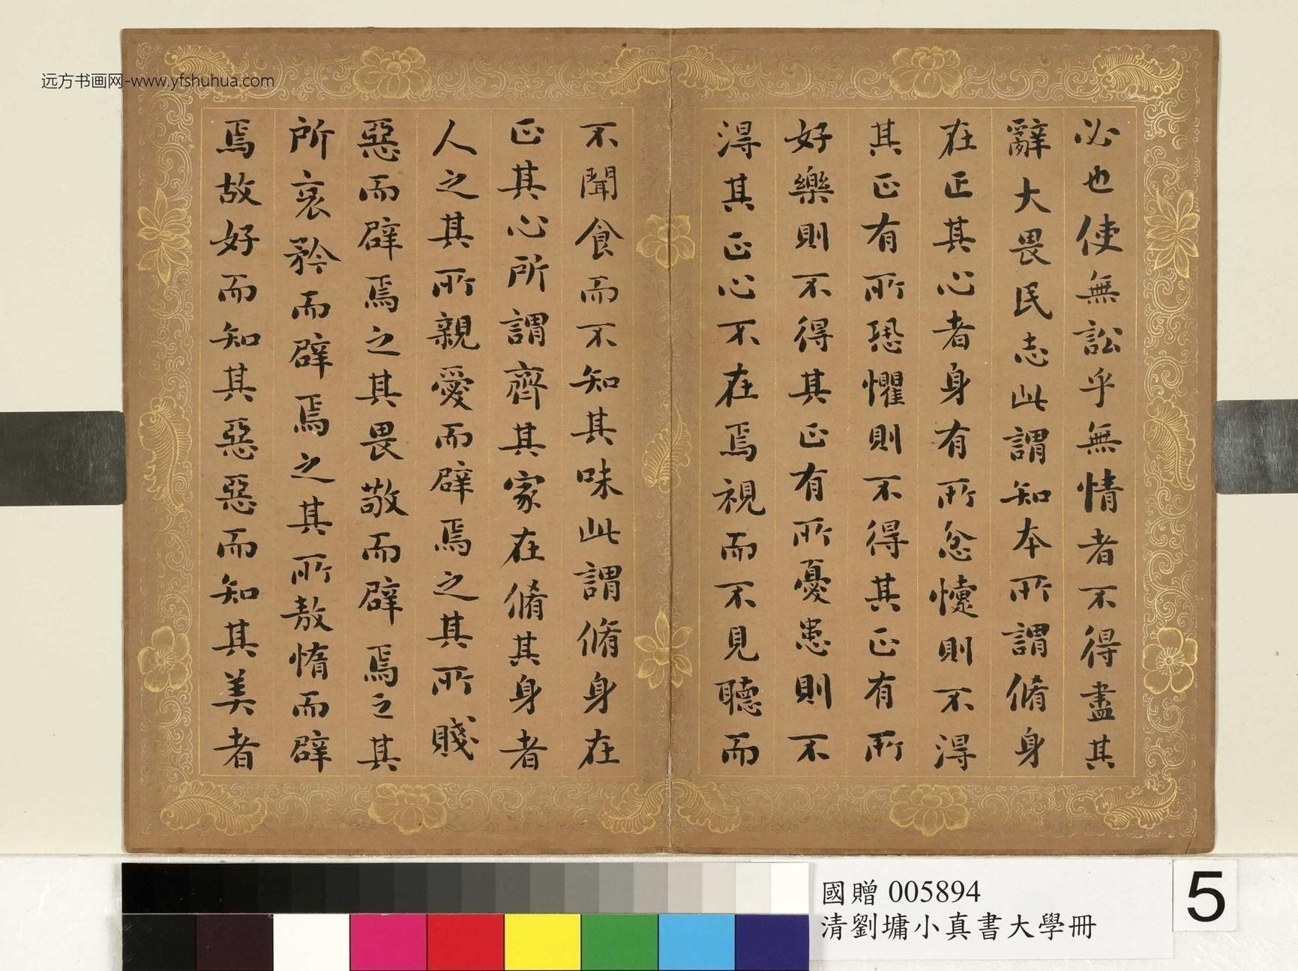 远方书画网-www.yfshuhua.com
必也使無訟乎無情者不得盡其
辭大畏民志此謂知本所謂脩身
在正其心者身有所忿懥則不淂
其正有所恐懼則不得其正有所
好樂則不得其正有所憂患則不
淂其正心不在焉視而不見聽而
不聞食而不知其味此謂脩身在
正其心所謂齊其家在脩其身者
人之其所親愛而辟焉之其所賤
惡而辟焉之其畏敬而辟焉之其
所哀矜而辟焉之其所敖惰而辟
焉故好而知其惡惡而知其美者
國贈 005894
清劉墉小真書大學冊
5